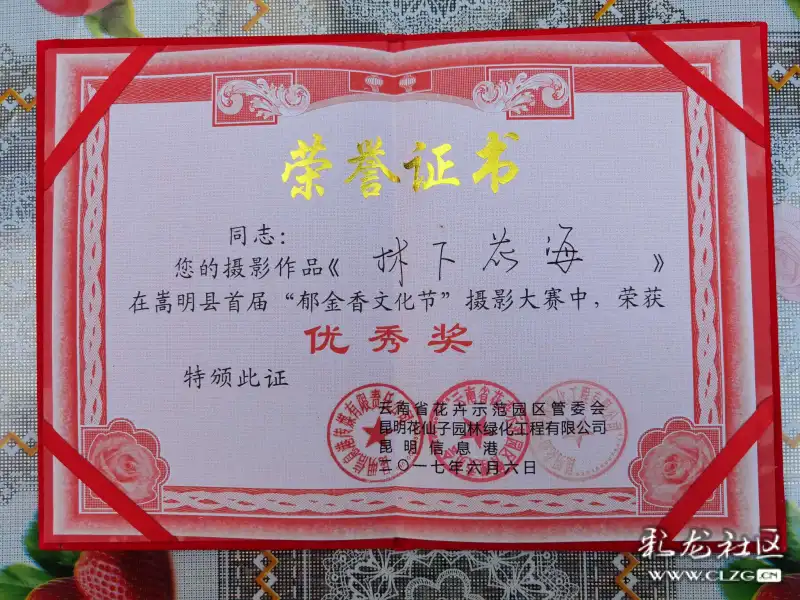 荣誉证书
同志：
您的摄影作品《林下花海》
在嵩明县首届“郁金香文化节”摄影大赛中，荣获
优秀奖
特颁此证
云南省花卉示范园区管委会
昆明花仙子园林绿化工程有限公司
昆明信息港
二〇一七年六月六日
彩龙社区
WWW.CLZG.CN